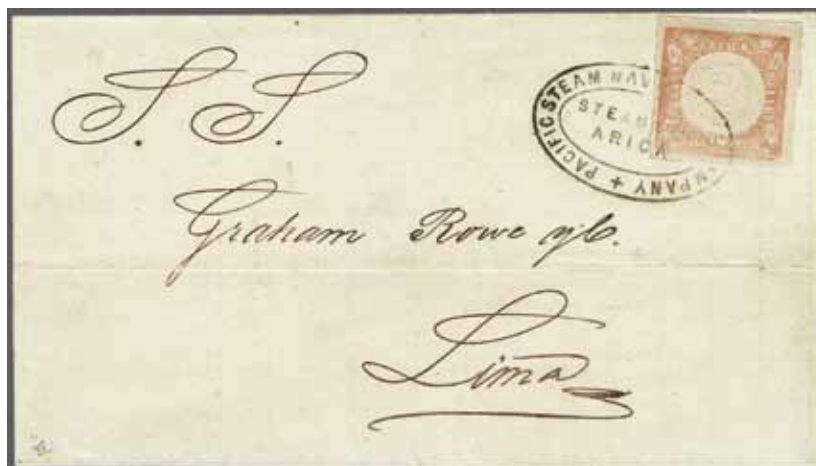 S. S.
PACIFIC STEAM NAV MPANY +
STEAM
ARICA
Graham Rowe y C.
Lima